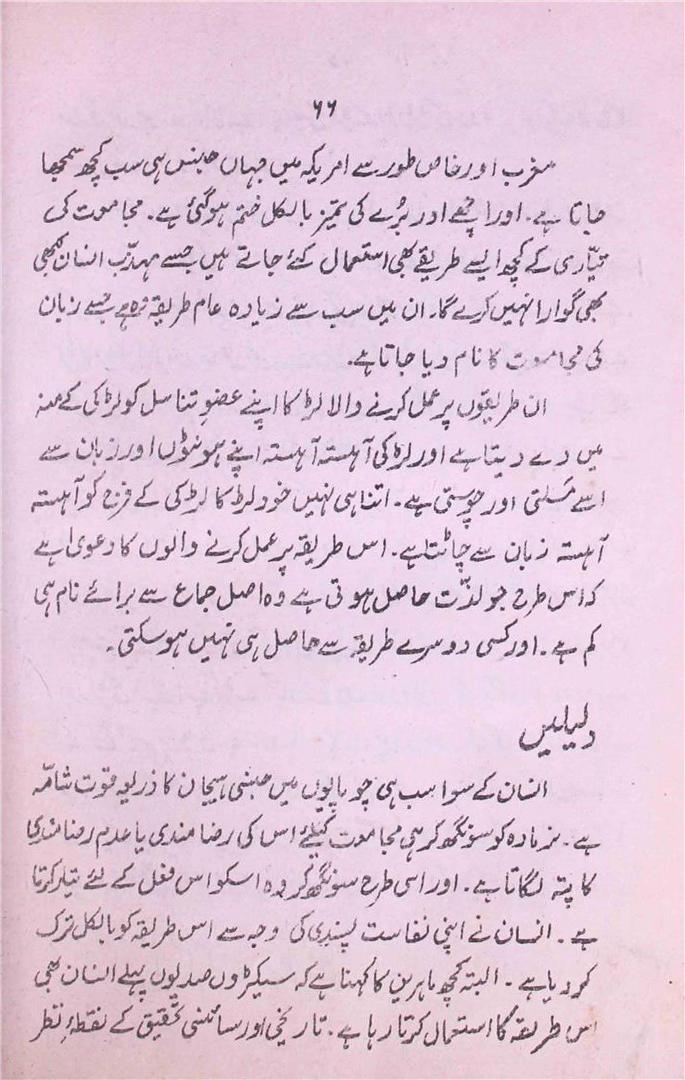 ۶۶
مغرب اور خاص طور سے امریکہ میں جہاں جنس ہی سب کچھ سمجھا
جاتا ہے۔ اور اچھے اور بُرے کی تمیز بالکل ختم ہو گئی ہے۔ مجامعت کی
تیّاری کے کچھ ایسے طریقے بھی استعمال کئے جاتے ہیں جسے مہذّب انسان کبھی
بھی گوارا نہیں کرے گا۔ ان میں سب سے زیادہ عام طریقہ وہ ہے جسے زبان
کی مجامعت کا نام دیا جاتا ہے۔
ان طریقوں پر عمل کرنے والا لڑکا اپنے عضوِ تناسل کو لڑکی کے منہ
میں دے دیتا ہے اور لڑکی آہستہ آہستہ اپنے ہونٹوں اور زبان سے
اسے مَسلتی اور چوستی ہے۔ اتنا ہی نہیں خود لڑکا لڑکی کے فرج کو آہستہ
آہستہ زبان سے چاٹتا ہے۔ اس طریقہ پر عمل کرنے والوں کا دعویٰ ہے
کہ اس طرح جو لذّت حاصل ہوتی ہے وہ اصل جماع سے برائے نام ہی
کم ہے۔ اور کسی دوسرے طریقہ سے حاصل ہی نہیں ہو سکتی۔
دلیلیں
انسان کے سوا سب ہی چوپایوں میں جنسی ہیجان کا ذریعہ قوت شامّہ
ہے۔ نر مادہ کو سونگھ کر ہی مجامعت کیلئے اس کی رضا مندی یا عدم رضامندی
کا پتہ لگاتا ہے۔ اور اسی طرح سونگھ کر وہ اسکو اس فعل کے لئے تیار کرتا
ہے۔ انسان نے اپنی نفاست پسندی کی وجہ سے اس طریقہ کو بالکل ترک
کر دیا ہے۔ البتہ کچھ ماہرین کا کہنا ہے کہ سیکڑوں صدیوں پہلے انسان بھی
اس طریقہ کا استعمال کرتا رہا ہے۔ تاریخی اور سائنسی تحقیق کے نقطۂ نظر